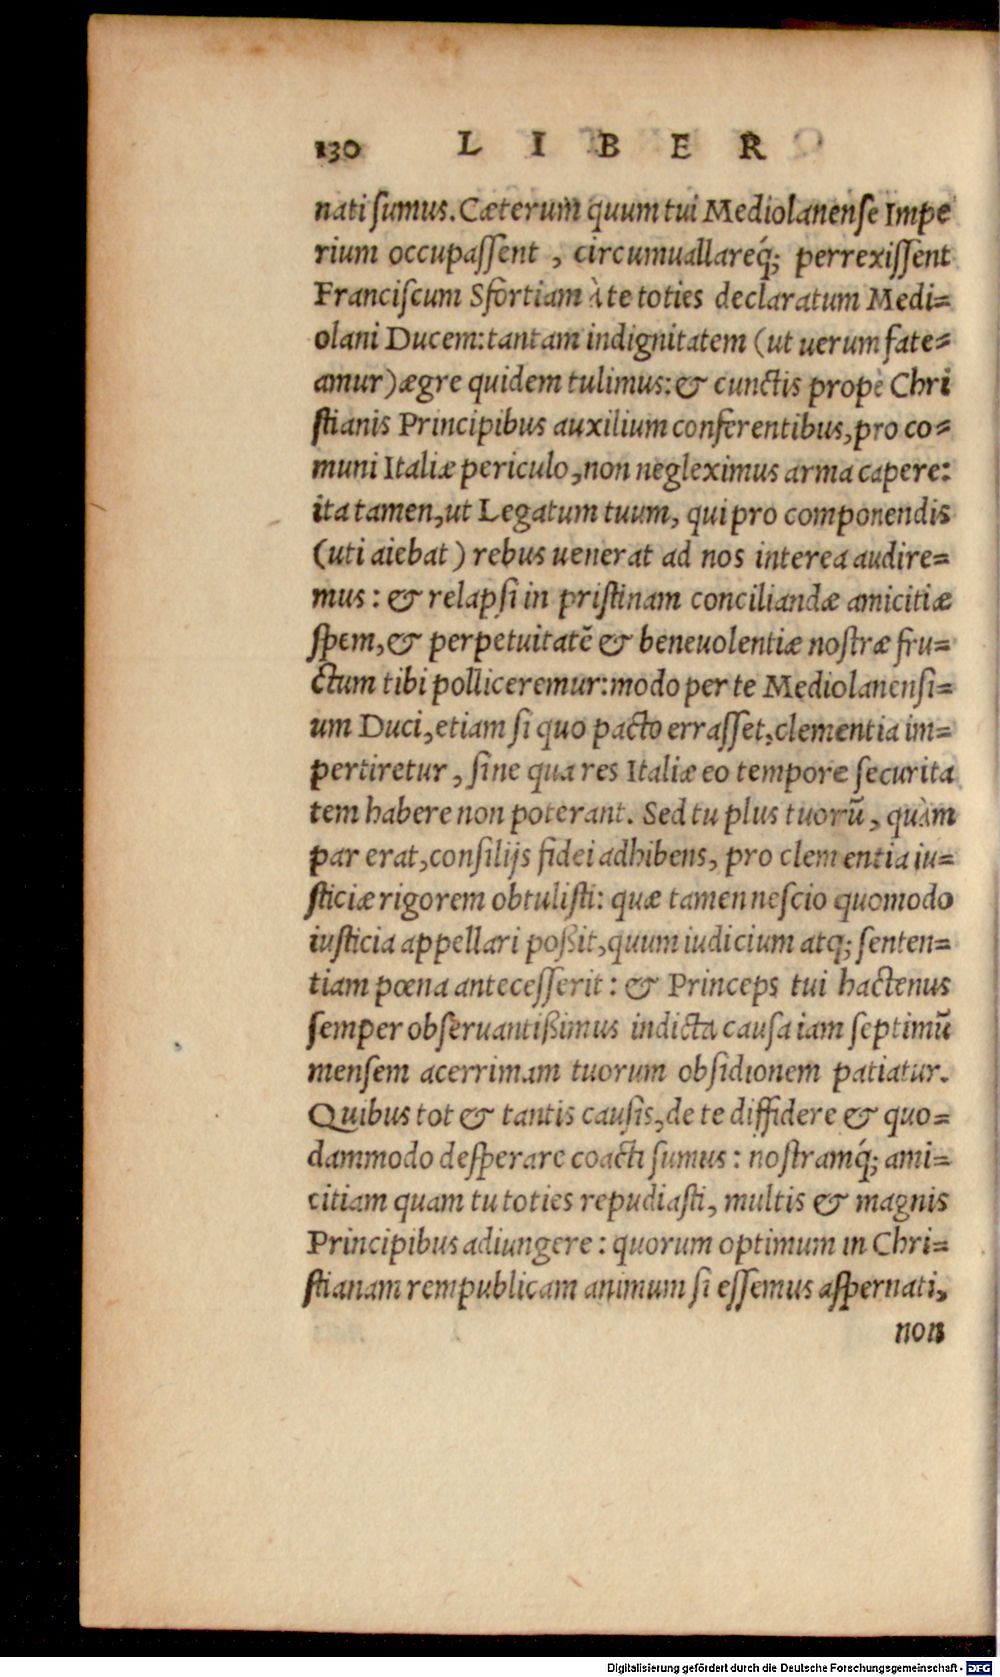 130 L I B E R
nati ſumus. Cæterum quum tui Mediolanenſe Impe
rium occupaſſent , circumuallareq́; perrexiſſent
Franciſcum Sfortiam à te toties declaratum Medi=
olani Ducem: tantam indignitatem (ut uerum fate=
amur) ægre quidem tulimus: & cunctis prope Chri
ſtianis Principibus auxilium conferentibus, pro co=
muni Italiæ periculo, non negleximus arma capere:
ita tamen, ut Legatum tuum, qui pro componendis
(uti aiebat ) rebus uenerat ad nos interea audire=
mus : & relapſi in priſtinam conciliandæ amicitiæ
ſpem, & perpetuitatē & beneuolentiæ noſtræ fru=
ctum tibi polliceremur: modo per te Mediolanenſi=
um Duci, etiam ſi quo pacto erraſſet, clementia im=
pertiretur , ſine qua res Italiæ eo tempore ſecurita
tem habere non poterant. Sed tu plus tuorū , quàm
par erat, conſilijs fidei adhibens, pro clementia iu=
ſticiæ rigorem obtuliſti: quæ tamen neſcio quomodo
iuſticia appellari poßit, quum iudicium atq; ſenten=
tiam pœna anteceſſerit : & Princeps tui hactenus
ſemper obſeruantißimus indicta cauſa iam ſeptimū
menſem acerrimam tuorum obſidionem patiatur.
Quibus tot & tantis cauſis, de te diffidere & quo=
dammodo deſperare coacti ſumus : noſtramq́; ami=
citiam quam tu toties repudiaſti, multis & magnis
Principibus adiungere : quorum optimum in Chri=
ſtianam rempublicam animum ſi eſſemus aſpernati,
non
Digitalisierung gefördert durch die Deutsche Forschungsgemeinschaft - DFG